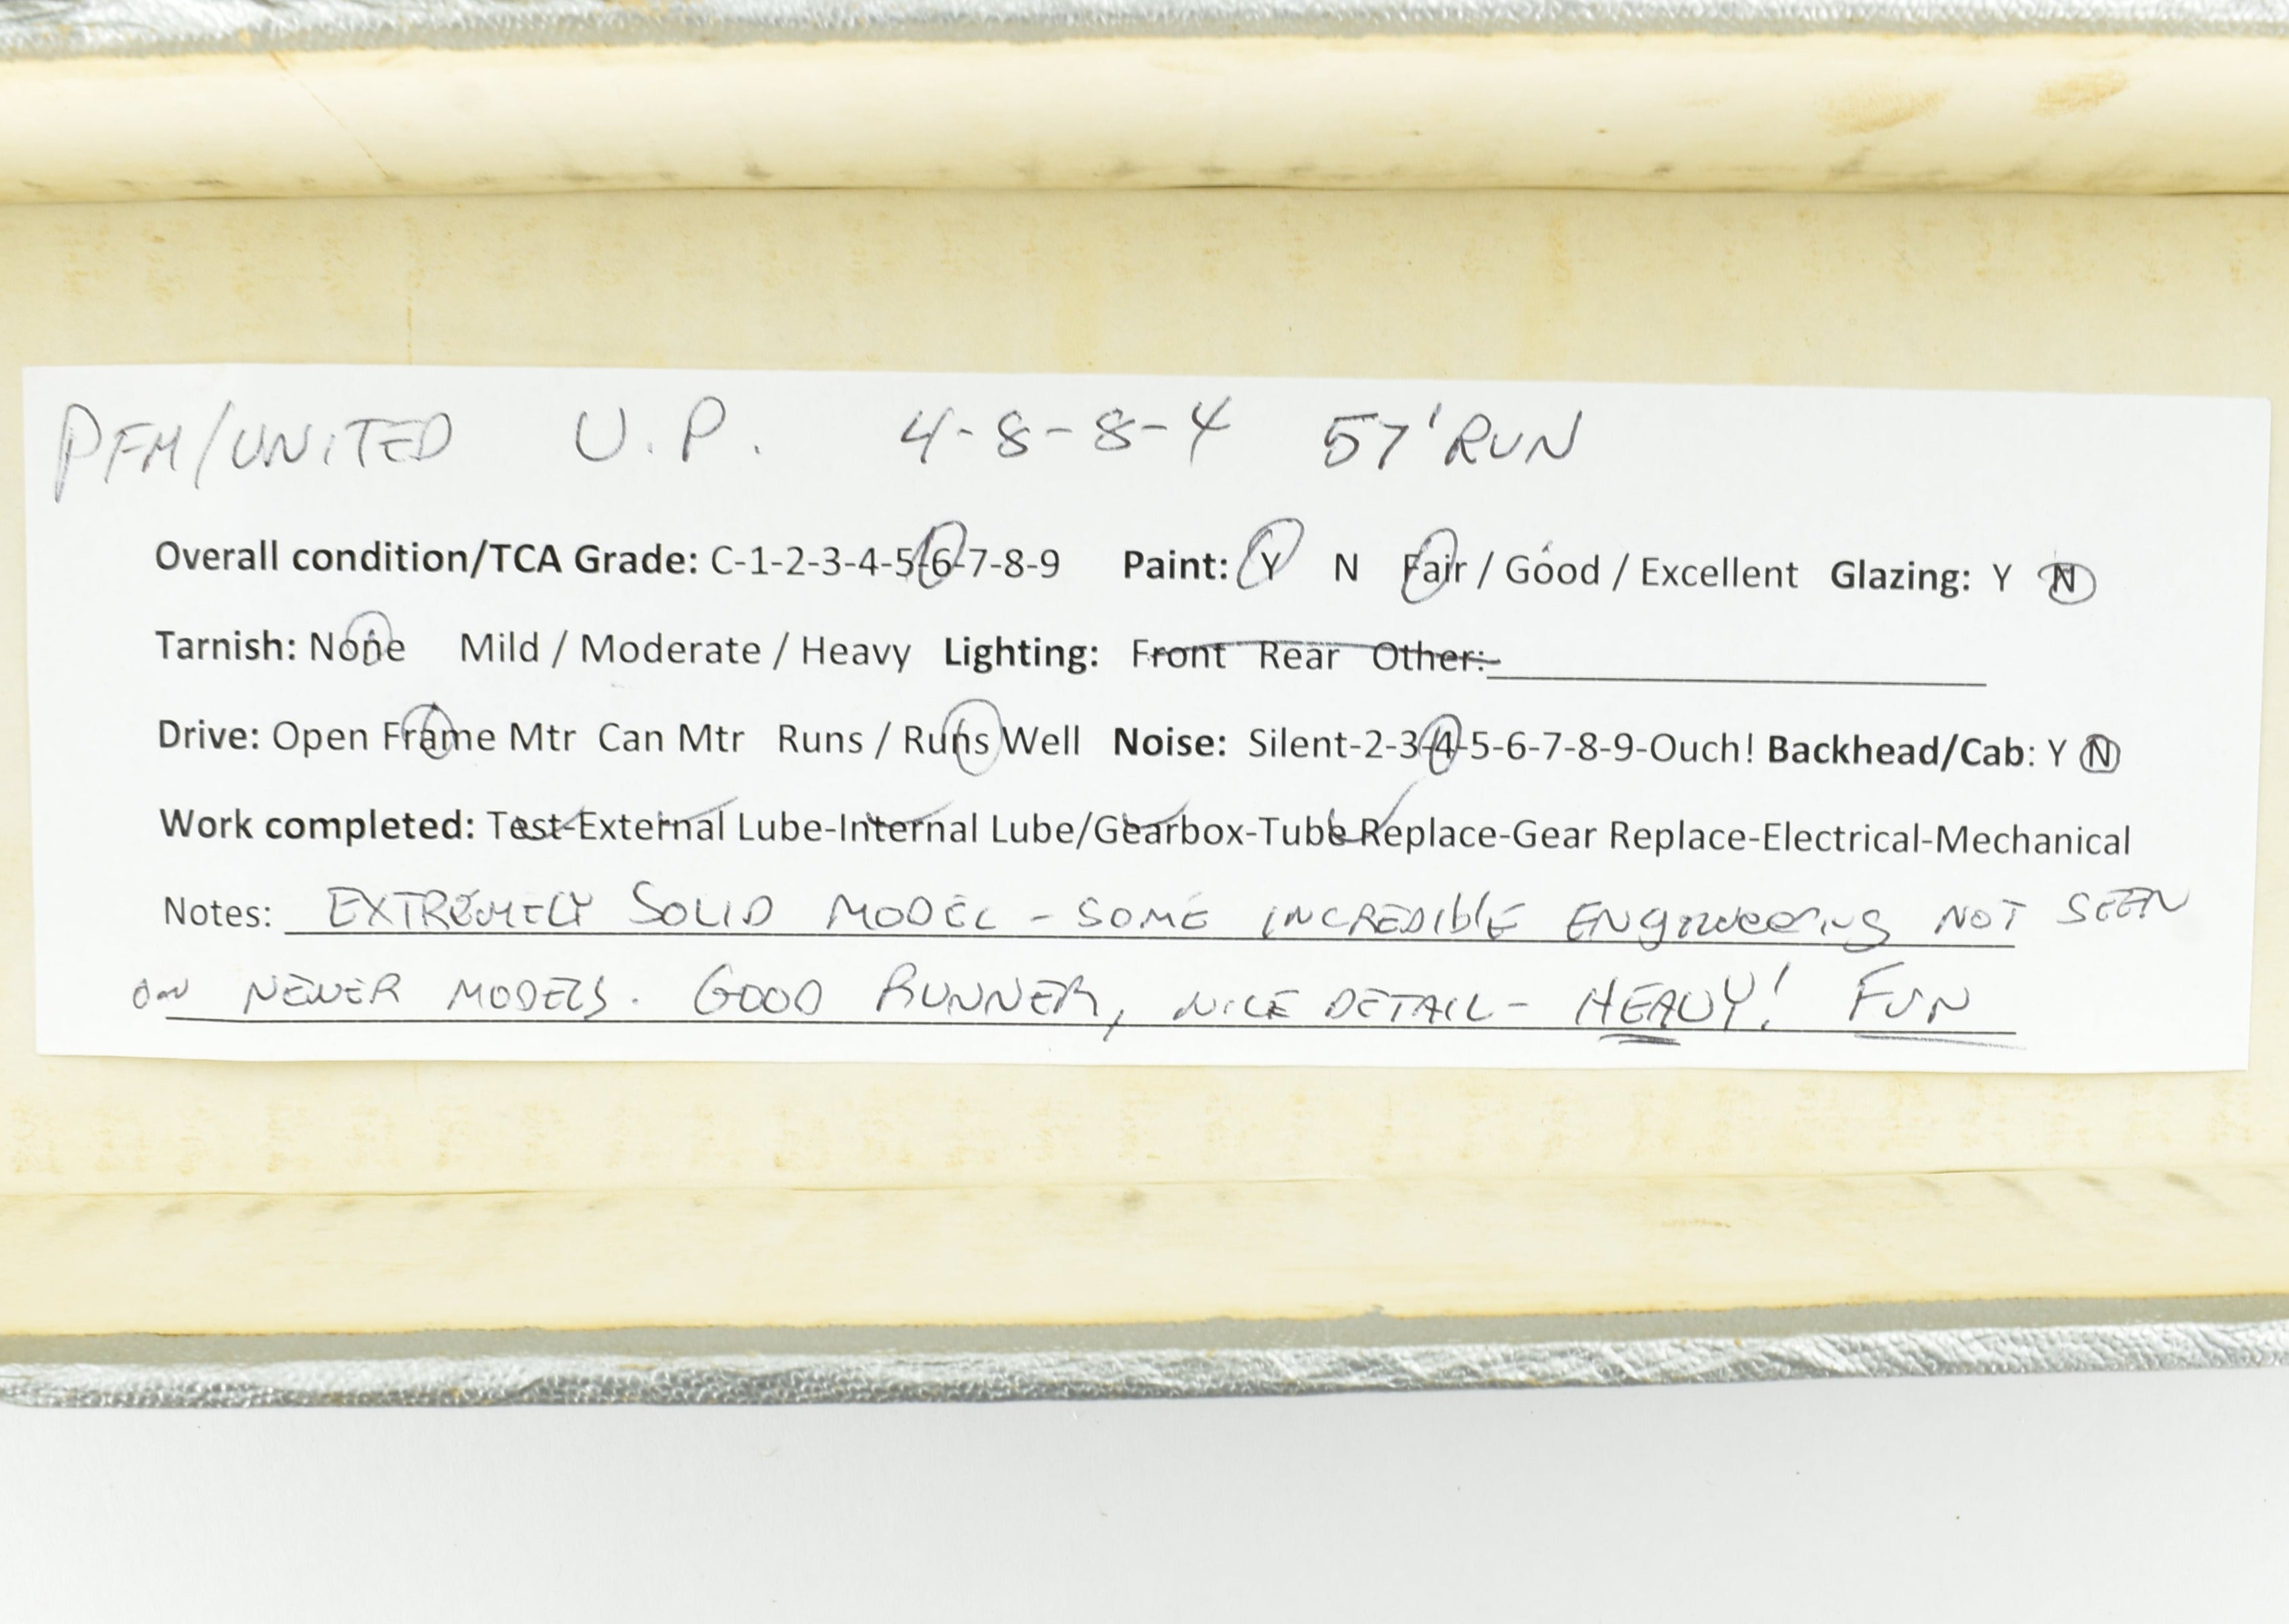 PFM/UNITED U.P. 4-8-8-4 57' RUN
Overall condition/TCA Grade: C-1-2-3-4-5-6-7-8-9 Paint: Y N Fair / Good / Excellent Glazing: Y N
Tarnish: None Mild / Moderate / Heavy Lighting: Front Rear Other:
Drive: Open Frame Mtr Can Mtr Runs / Runs Well Noise: Silent-2-3-4-5-6-7-8-9-Ouch! Backhead/Cab: Y N
Work completed: Test-External Lube-Internal Lube/Gearbox-Tube Replace-Gear Replace-Electrical-Mechanical
Notes: EXTREMELY SOLID MODEL - SOME INCREDIBLE ENGINEERING NOT SEEN
ON NEWER MODELS. GOOD RUNNER, NICE DETAIL - HEAVY! FUN